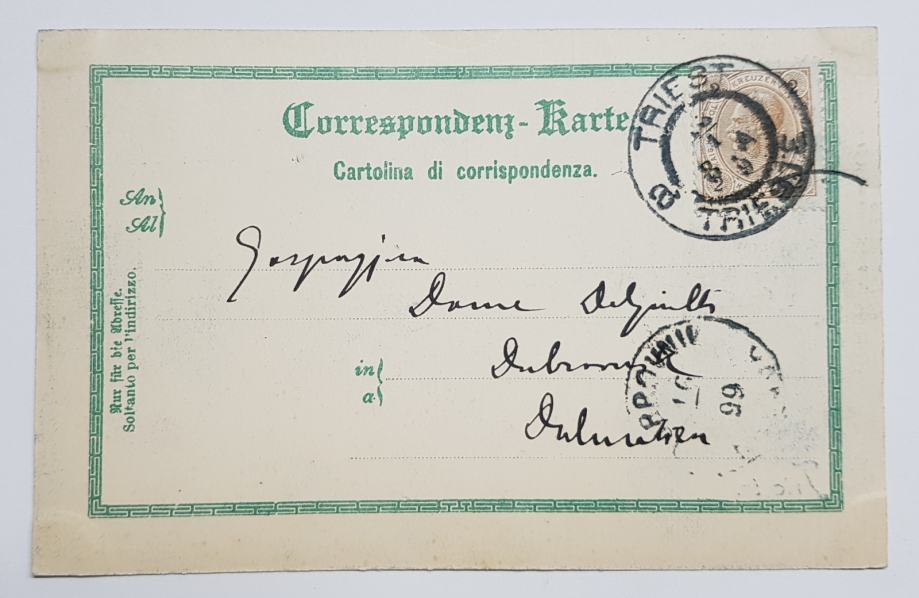 Correspondenz-Karte
Cartolina di corrispondenza.
TRIEST
TRIESTE
KREUZER
An
Al
Nur für die Adresse.
Soltanto per l'indirizzo.
Gospogjica
Dome
in
a
Dubrovnik
Dalmatien
99